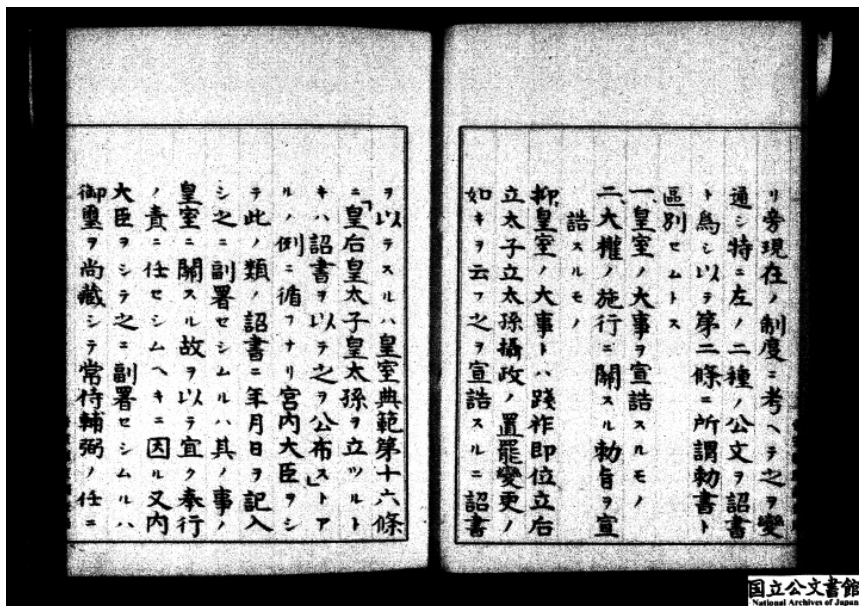 リ旁現在ノ制度ニ考ヘテ之ヲ變
通シ特ニ左ノ二種ノ公文ヲ詔書
ト爲シ以テ第二條ニ所謂勅書ト
區別セムトス
一、皇室ノ大事ヲ宣誥スルモノ
二、大權ノ施行ニ關スル勅旨ヲ宣
誥スルモノ
抑皇室ノ大事トハ踐祚即位立后
立太子立太孫攝政ノ置罷變更ノ
如キヲ云フ之ヲ宣誥スルニ詔書
ヲ以テスルハ皇室典範第十六條
ニ「皇后皇太子皇太孫ヲ立ツルト
キハ詔書ヲ以テ之ヲ公布ス」トア
ルノ例ニ循フナリ宮内大臣ヲシ
テ此ノ類ノ詔書ニ年月日ヲ記入
シ之ニ副署セシムルハ其ノ事ノ
皇室ニ關スル故ヲ以テ宜ク奉行
ノ責ニ任セシムヘキニ因ル又内
大臣ヲシテ之ニ副署セシムルハ
御璽ヲ尚藏シテ常侍輔弼ノ任ニ
国立公文書館
National Archives of Japan